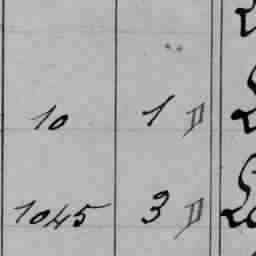 10 1 D
1045 3 D